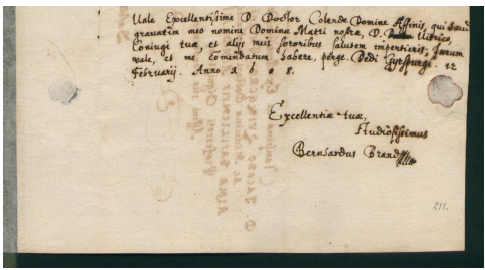 Vale Excellentissime D. Doctor Colende Domine Affinis, qui haud
gravatim meo nomine Dominæ Matri nostræ, D. Uldrico,
Coniugi tuæ, et alijs meis sororibus salutem impertieris; Iterum
vale, et me comendatum habere, perge. Dedi 12
Februarij. Anno 1608.
Excellentiæ tuæ,
studiosissimus
Bernhardus Brand
211.